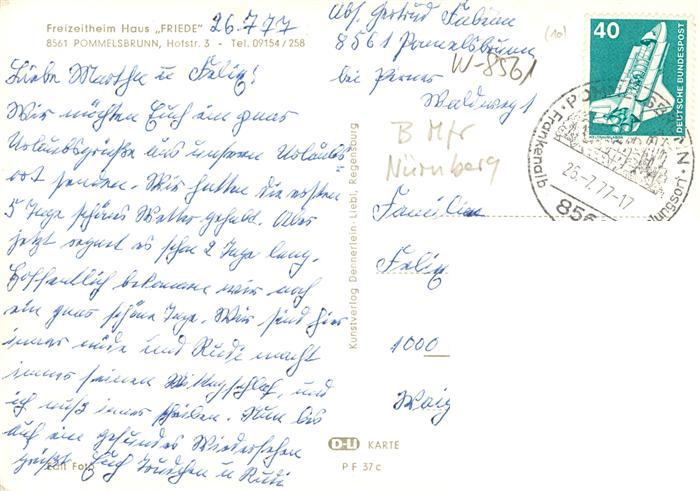 Freizeitheim Haus „FRIEDE"
8561 POMMELSBRUNN, Hofstr. 3 - Tel. 09154/258
26.7.77
Liebe Martha u Felix!
Wir möchten Euch ein paar
Urlaubsgrüße aus unserem Urlaubs
ort senden. Wir hatten die ersten
5 Tage schönes Wetter gehabt. Aber
jetzt regnet es schon 2 Tage lang.
Hoffentlich bekommen wir noch
ein paar schöne Tage. Wir sind hier
immer müde und Rudi macht
immer seinen Mittagschlaf, und
ich muß immer schreiben. Nun bis
auf ein gesundes Wiedersehen
grüßt Euch u Rudi
Edit Foto
Abs. Gertrud Fabian
8561 Pommelsbrunn
bei
Waldweg 1
W-8561
(10)
B Mfr
Nürnberg
Familie
Felix
1000
40
DEUTSCHE BUNDESPOST
POMMELSBRUNN
Frankenalb
26.-7.77-17
856
Kunstverlag Dennerlein-Liebl, Regensburg
D-Li KARTE
PF 37c